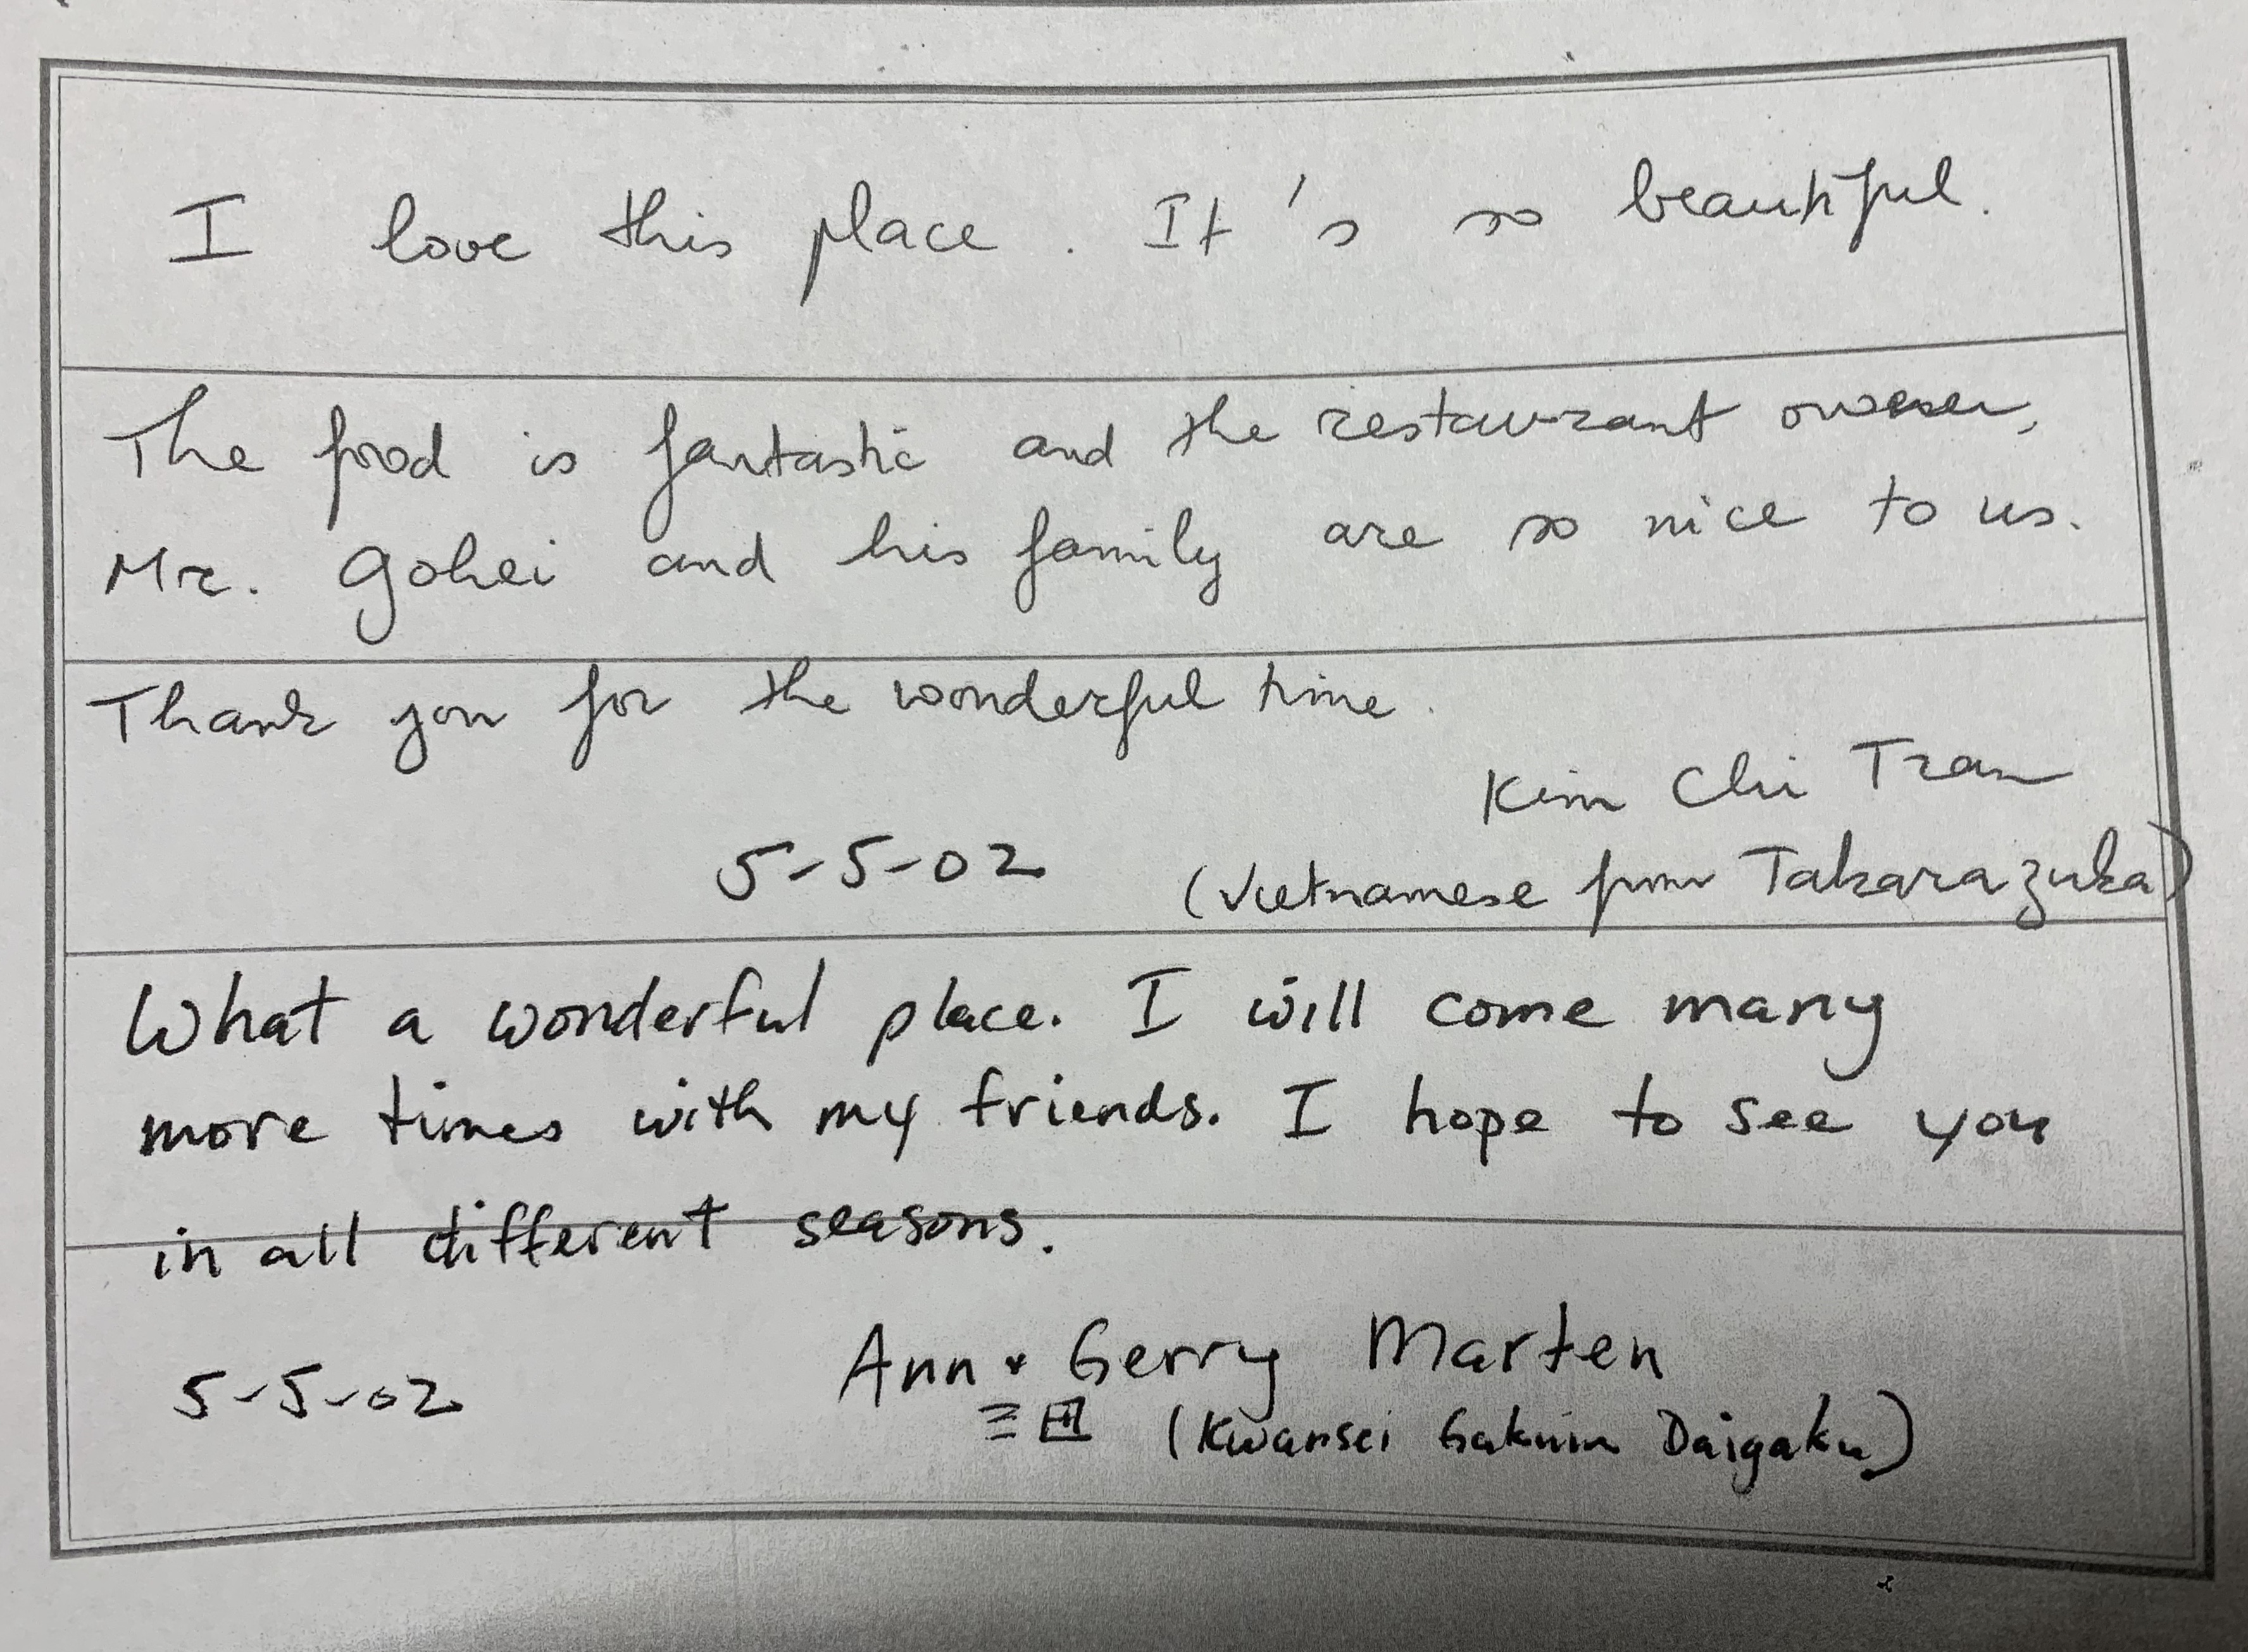 I love this place. It's so beautiful.
The food is fantastic and the restaurant owner,
Mr. Gohei and his family are so nice to us.
Thank you for the wonderful time.
Kim Chi Tran
5-5-02 (Vietnamese from Takarazuka)
What a wonderful place. I will come many
more times with my friends. I hope to see you
in all different seasons.
5-5-02 Ann & Gerry Marten
三田 (Kwansei Gakuin Daigaku)